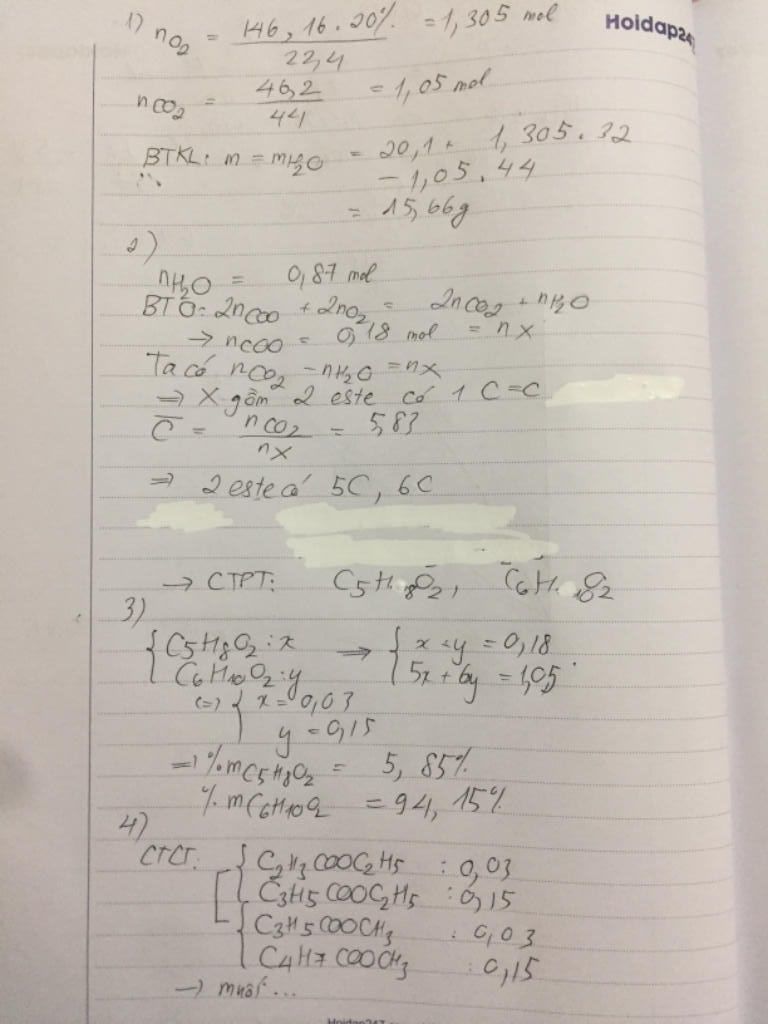 Hoidap247
1) nO2 = 146,16.20% / 22,4 = 1,305 mol
nCO2 = 46,2 / 44 = 1,05 mol
BTKL: m = mH2O = 20,1 + 1,305.32
- 1,05.44
= 15,66g
2)
nH2O = 0,87 mol
BTO: 2nCOO + 2nO2 = 2nCO2 + nH2O
→ nCOO = 0,18 mol = nX
Ta có nCO2 - nH2O = nX
=> X gồm 2 este có 1 C=C
C̅ = nCO2 / nX = 5,83
=> 2 este có 5C, 6C
→ CTPT: C5H8O2, C6H10O2
3)
{ C5H8O2: x => { x+y = 0,18
C6H10O2: y 5x + 6y = 1,05
(=) { x = 0,03
y = 0,15
=> %mC5H8O2 = 5,85%
%mC6H10O2 = 94,15%
4)
CTCT: { C2H3COOC2H5 : 0,03
C3H5COOC2H5 : 0,15
{ C3H5COOCH3 : 0,03
C4H7COOCH3 : 0,15
→ muối...
Hoidap247